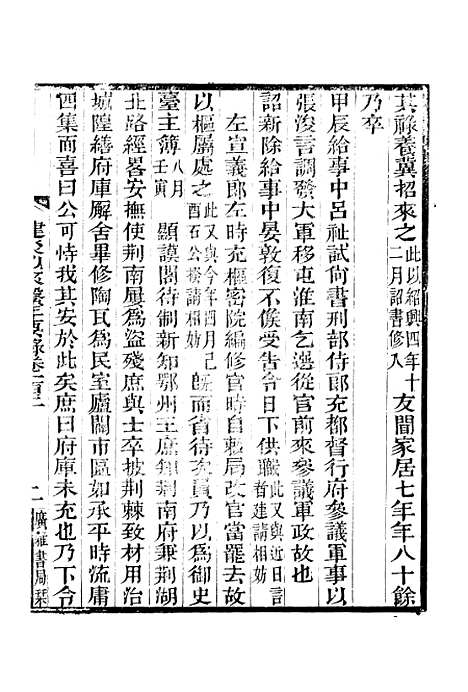 其祿養冀招來之此以紹興四年十二月詔書修入友聞家居七年年八十餘
乃卒
甲辰給事中呂祉試尚書刑部侍郎充都督行府參議軍事以
張浚言調發大軍移屯淮南乞選從官前來參議軍政故也
詔新除給事中晏敦復不候受告令日下供職此又與近日言者建請相妨
左宣義郎左時充樞密院編修官時自敕局改官當罷去故
以樞屬處之此又與今年四月己酉五公揆請相妨既而省待充員乃以爲御史
臺主簿八月壬寅顯謨閣待制新知鄂州王庶知荆南府兼荆湖
北路經畧安撫使荆南屢爲盜殘庶與士卒披荆棘致材用治
城隍繕府庫廨舍畢修陶瓦爲民室廬闤市區如承平時流庸
四集而喜曰公可恃我其安於此矣庶曰府庫未充也乃下令
建炎以來繫年要錄卷一百二
廣雅書局栞